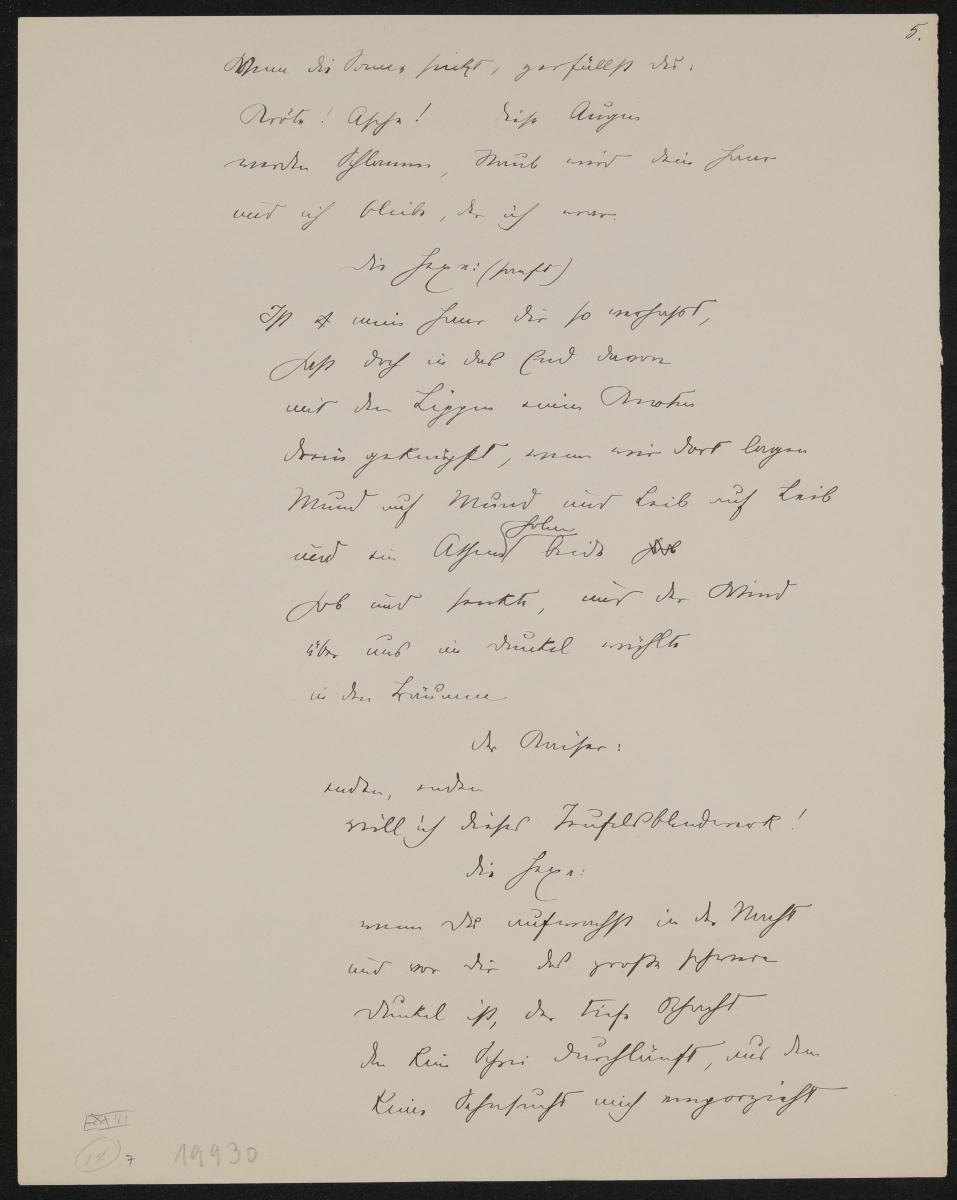 5.
Wenn die Sonne sinkt, zerfällst du:
Kröte! Asche! diese Augen
werden Schlamm, Staub wird dein Haar
und ich bleibe, der ich war.
die Hexe: (sanft)
Ist mein Haar dir so verhasst,
hast doch in das End davon
mit den Lippen einen Knoten
drein geknüpft, wenn wir dort lagen
Mund auf Mund und Leib auf Leib
und ein Athemholen beide
hob und senkte, und der Wind
über uns im Dunkel wühlte
in den Bäumen
der Kaiser:
enden, enden
will ich dieses Teufelsblendwerk!
die Hexe:
wenn Du aufwachst in der Nacht
und vor dir das große schwere
Dunkel ist, der tiefe Schacht
den kein Schrei durchläuft, aus dem
keine Sehnsucht mich emporzieht
III
14
7
19930